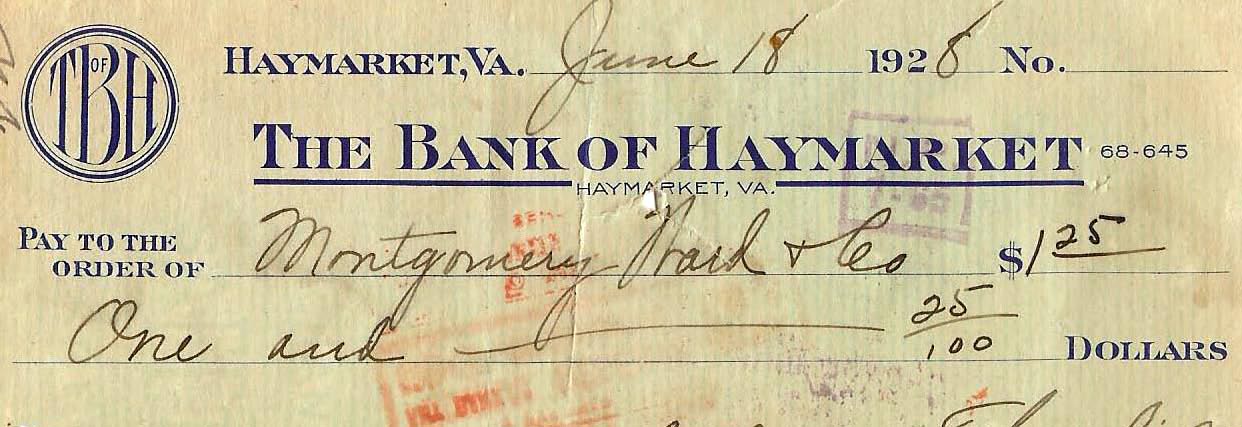 TBH OF
HAYMARKET, VA. June 18 1928 No.
THE BANK OF HAYMARKET 68-645
HAYMARKET, VA.
PAY TO THE ORDER OF Montgomery Ward & Co $1 25
One and 25/100 DOLLARS